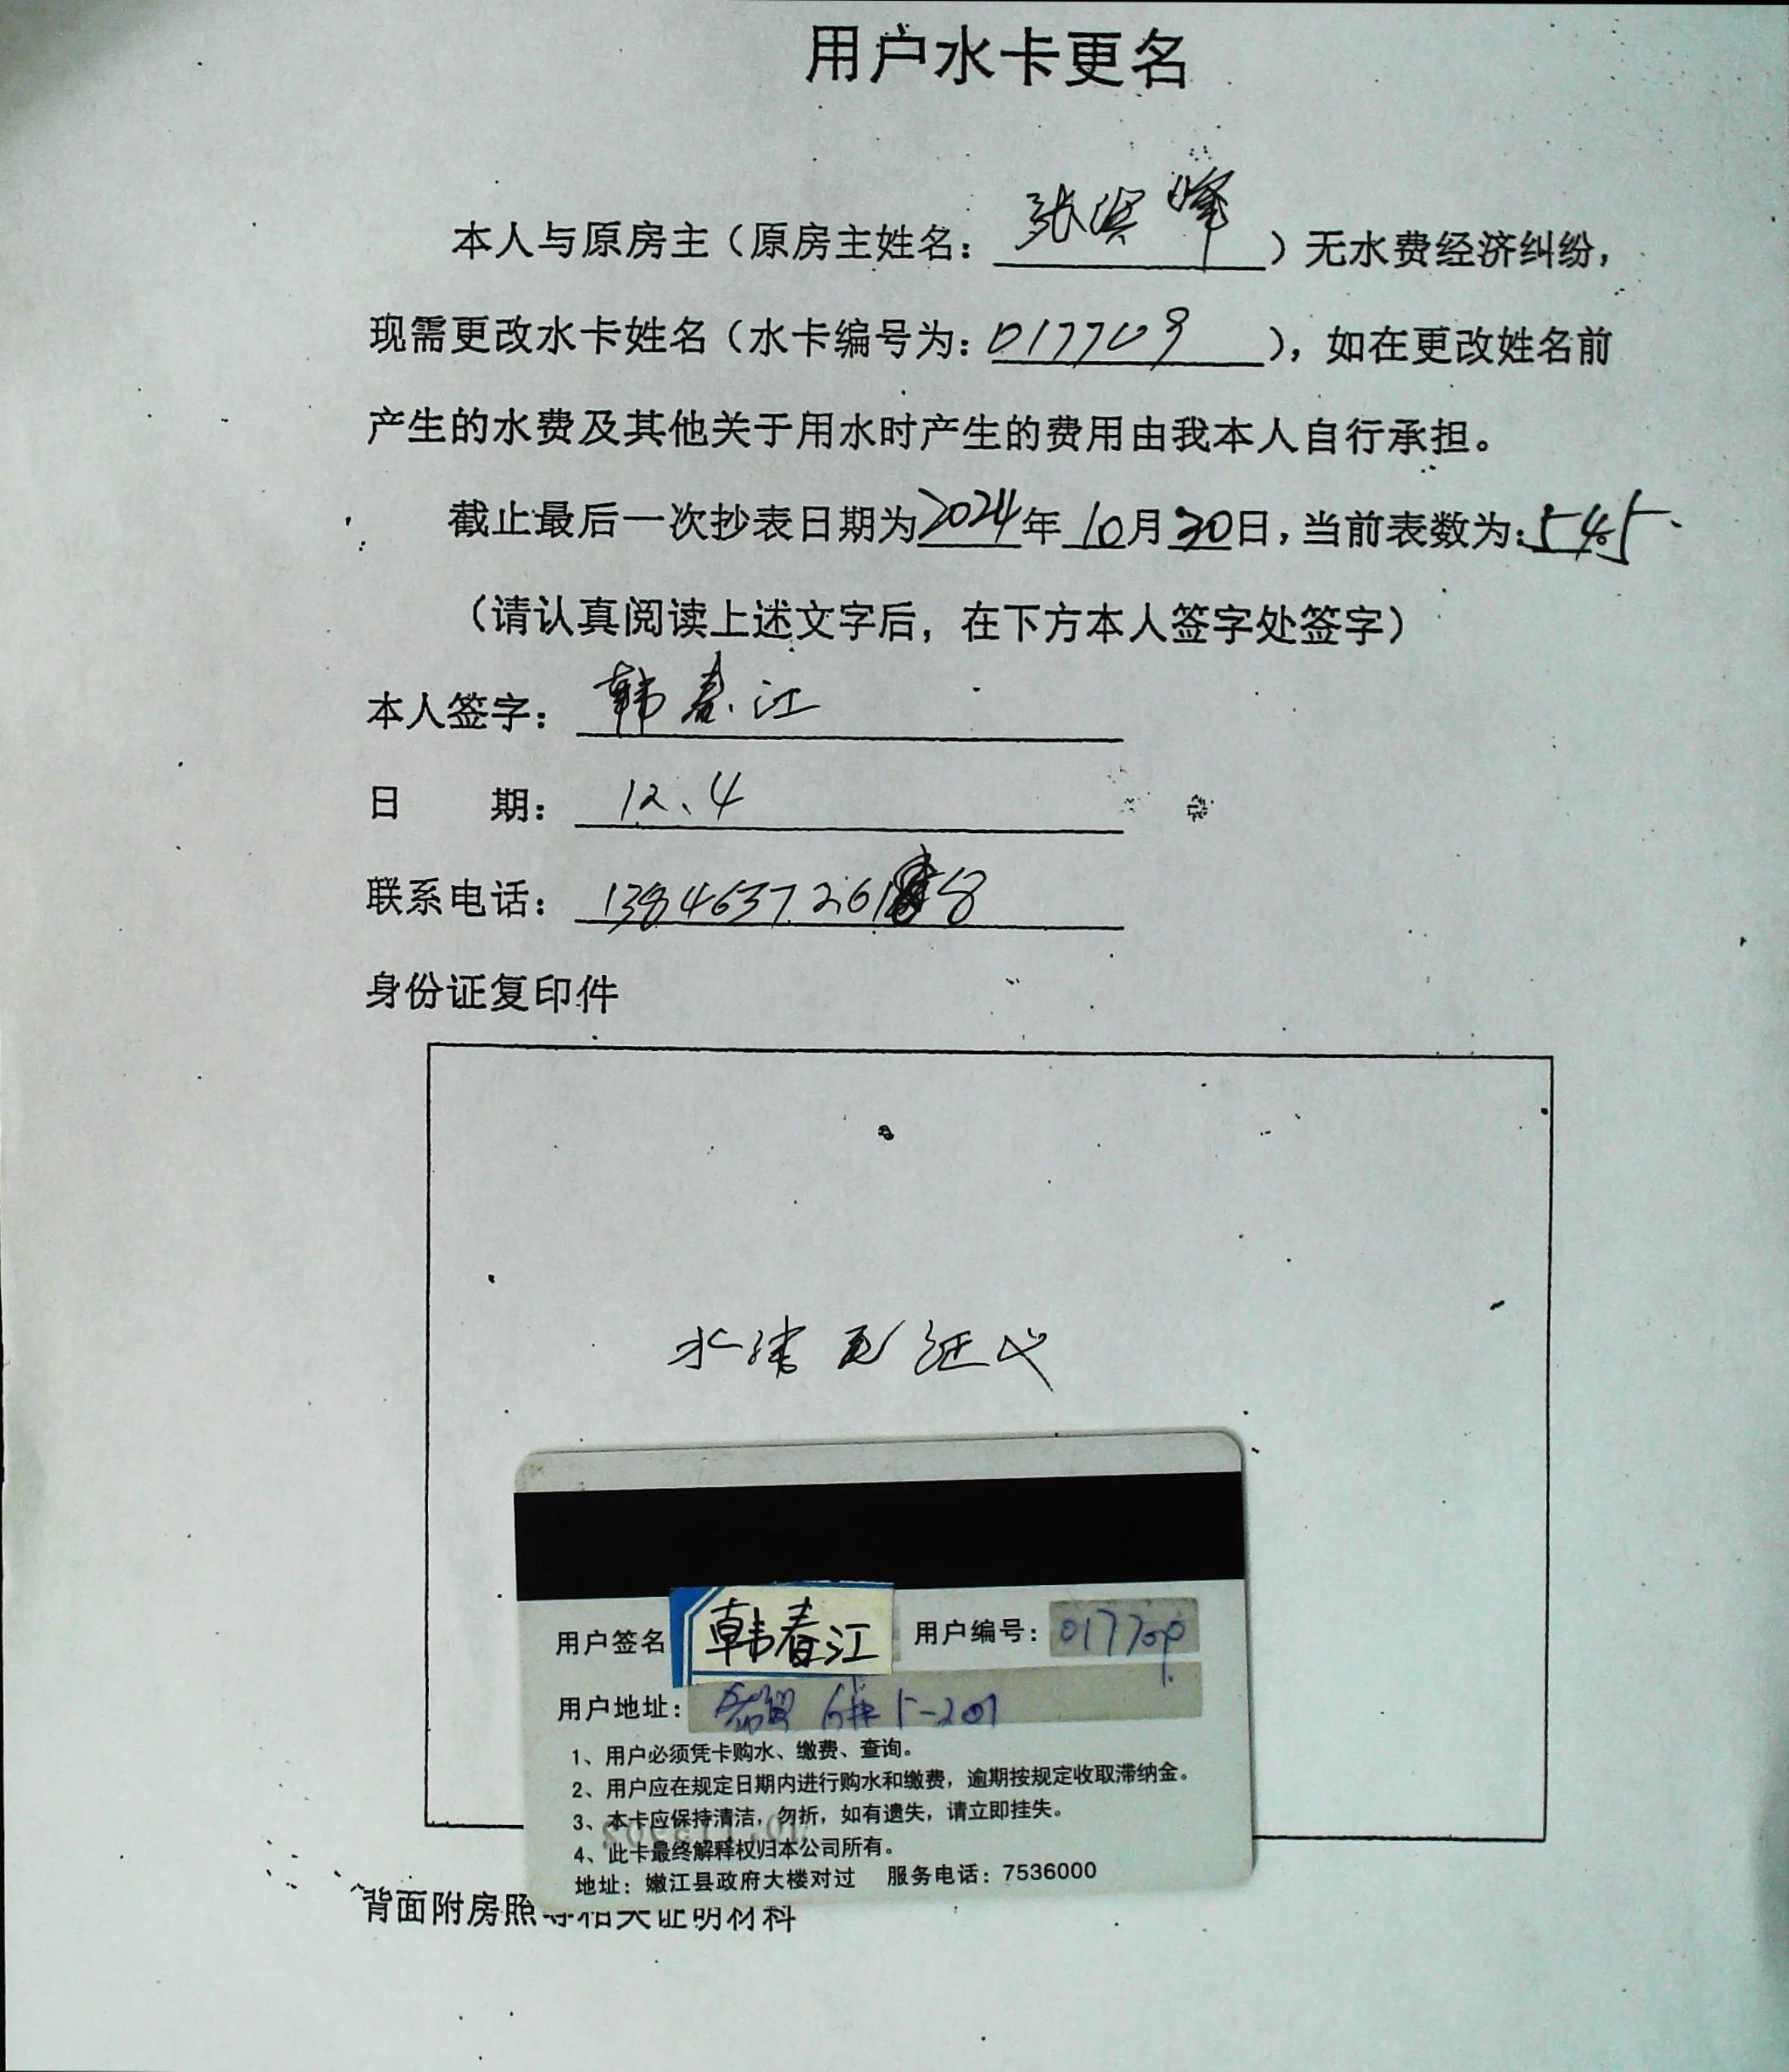 用户水卡更名
本人与原房主（原房主姓名：张滨峰）无水费经济纠纷，
现需更改水卡姓名（水卡编号为：017709），如在更改姓名前
产生的水费及其他关于用水时产生的费用由我本人自行承担。
截止最后一次抄表日期为2024年10月30日，当前表数为：545
（请认真阅读上述文字后，在下方本人签字处签字）
本人签字：韩春江
日 期：12.4
联系电话：13846372618
身份证复印件
用户签名 韩春江 用户编号：017709
用户地址： 6 5-201
1、用户必须凭卡购水、缴费、查询。
2、用户应在规定日期内进行购水和缴费，逾期按规定收取滞纳金。
3、本卡应保持清洁，勿折，如有遗失，请立即挂失。
4、此卡最终解释权归本公司所有。
地址：嫩江县政府大楼对过 服务电话：7536000
背面附房照等相关证明材料